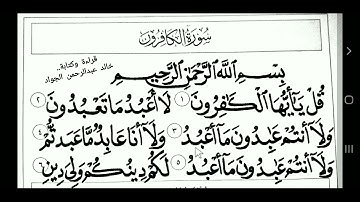 سورة الكافرون
قراءة وكتابة..
خالد عبدالرحمن الجواد
بِسْمِ اللَّهِ الرَّحْمَٰنِ الرَّحِيمِ
قُلْ يَا أَيُّهَا الْكَافِرُونَ ١ لَا أَعْبُدُ مَا تَعْبُدُونَ ٢
وَلَا أَنتُمْ عَابِدُونَ مَا أَعْبُدُ ٣ وَلَا أَنَا عَابِدٌ مَّا عَبَدتُّمْ ٤
وَلَا أَنتُمْ عَابِدُونَ مَا أَعْبُدُ ٥ لَكُمْ دِينُكُمْ وَلِيَ دِينِ ٦